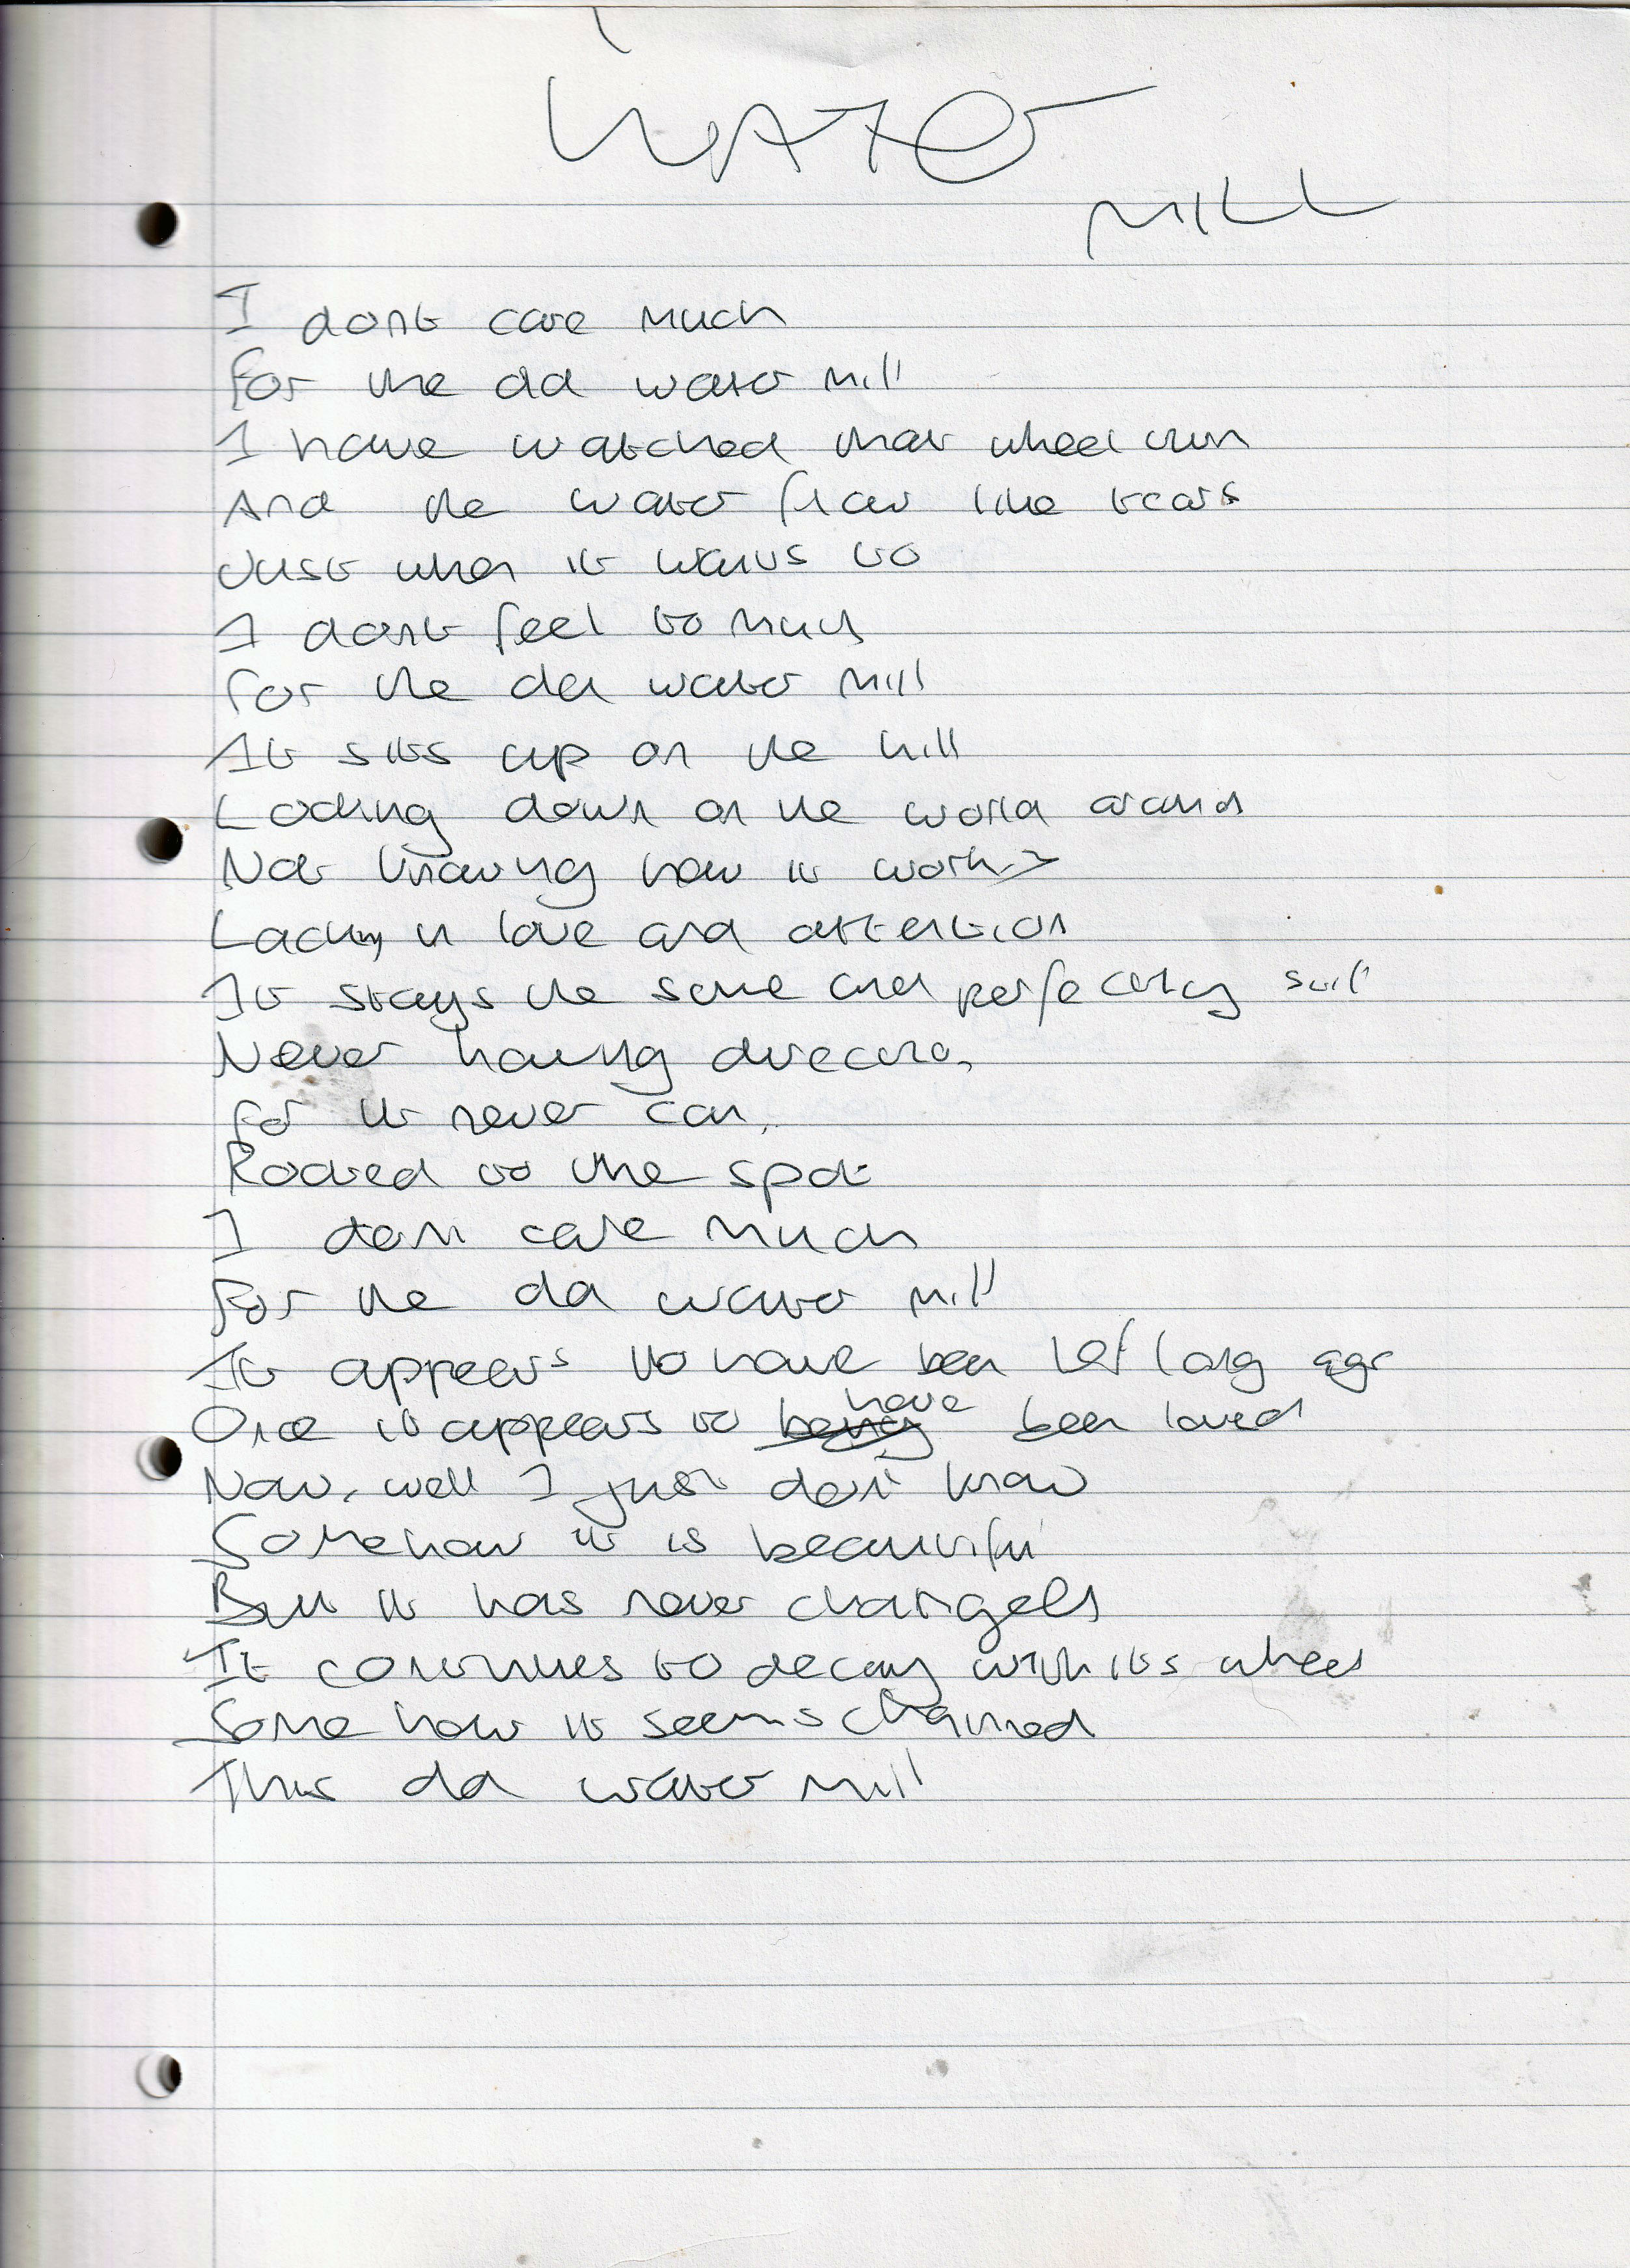 WATER
MILL
I dont care much
For the old water mill
I have watched that wheel turn
And the water flow like tears
Just when it wants to
I dont feel to much
For the old water mill
It sits up on the hill
Looking down on the world around
Not knowing how it works
Lacking in love and attention
It stays the same and perfectly still
Never having direction,
for it never can,
Rooted to the spot
I dont care much
For the old water mill
It appears to have been left long ago
Once it appears to have been loved
Now, well I just don't know
Somehow it is beautiful
But it has never changed
It continues to decay with its wheel
Some how it seems chained
This old water mill